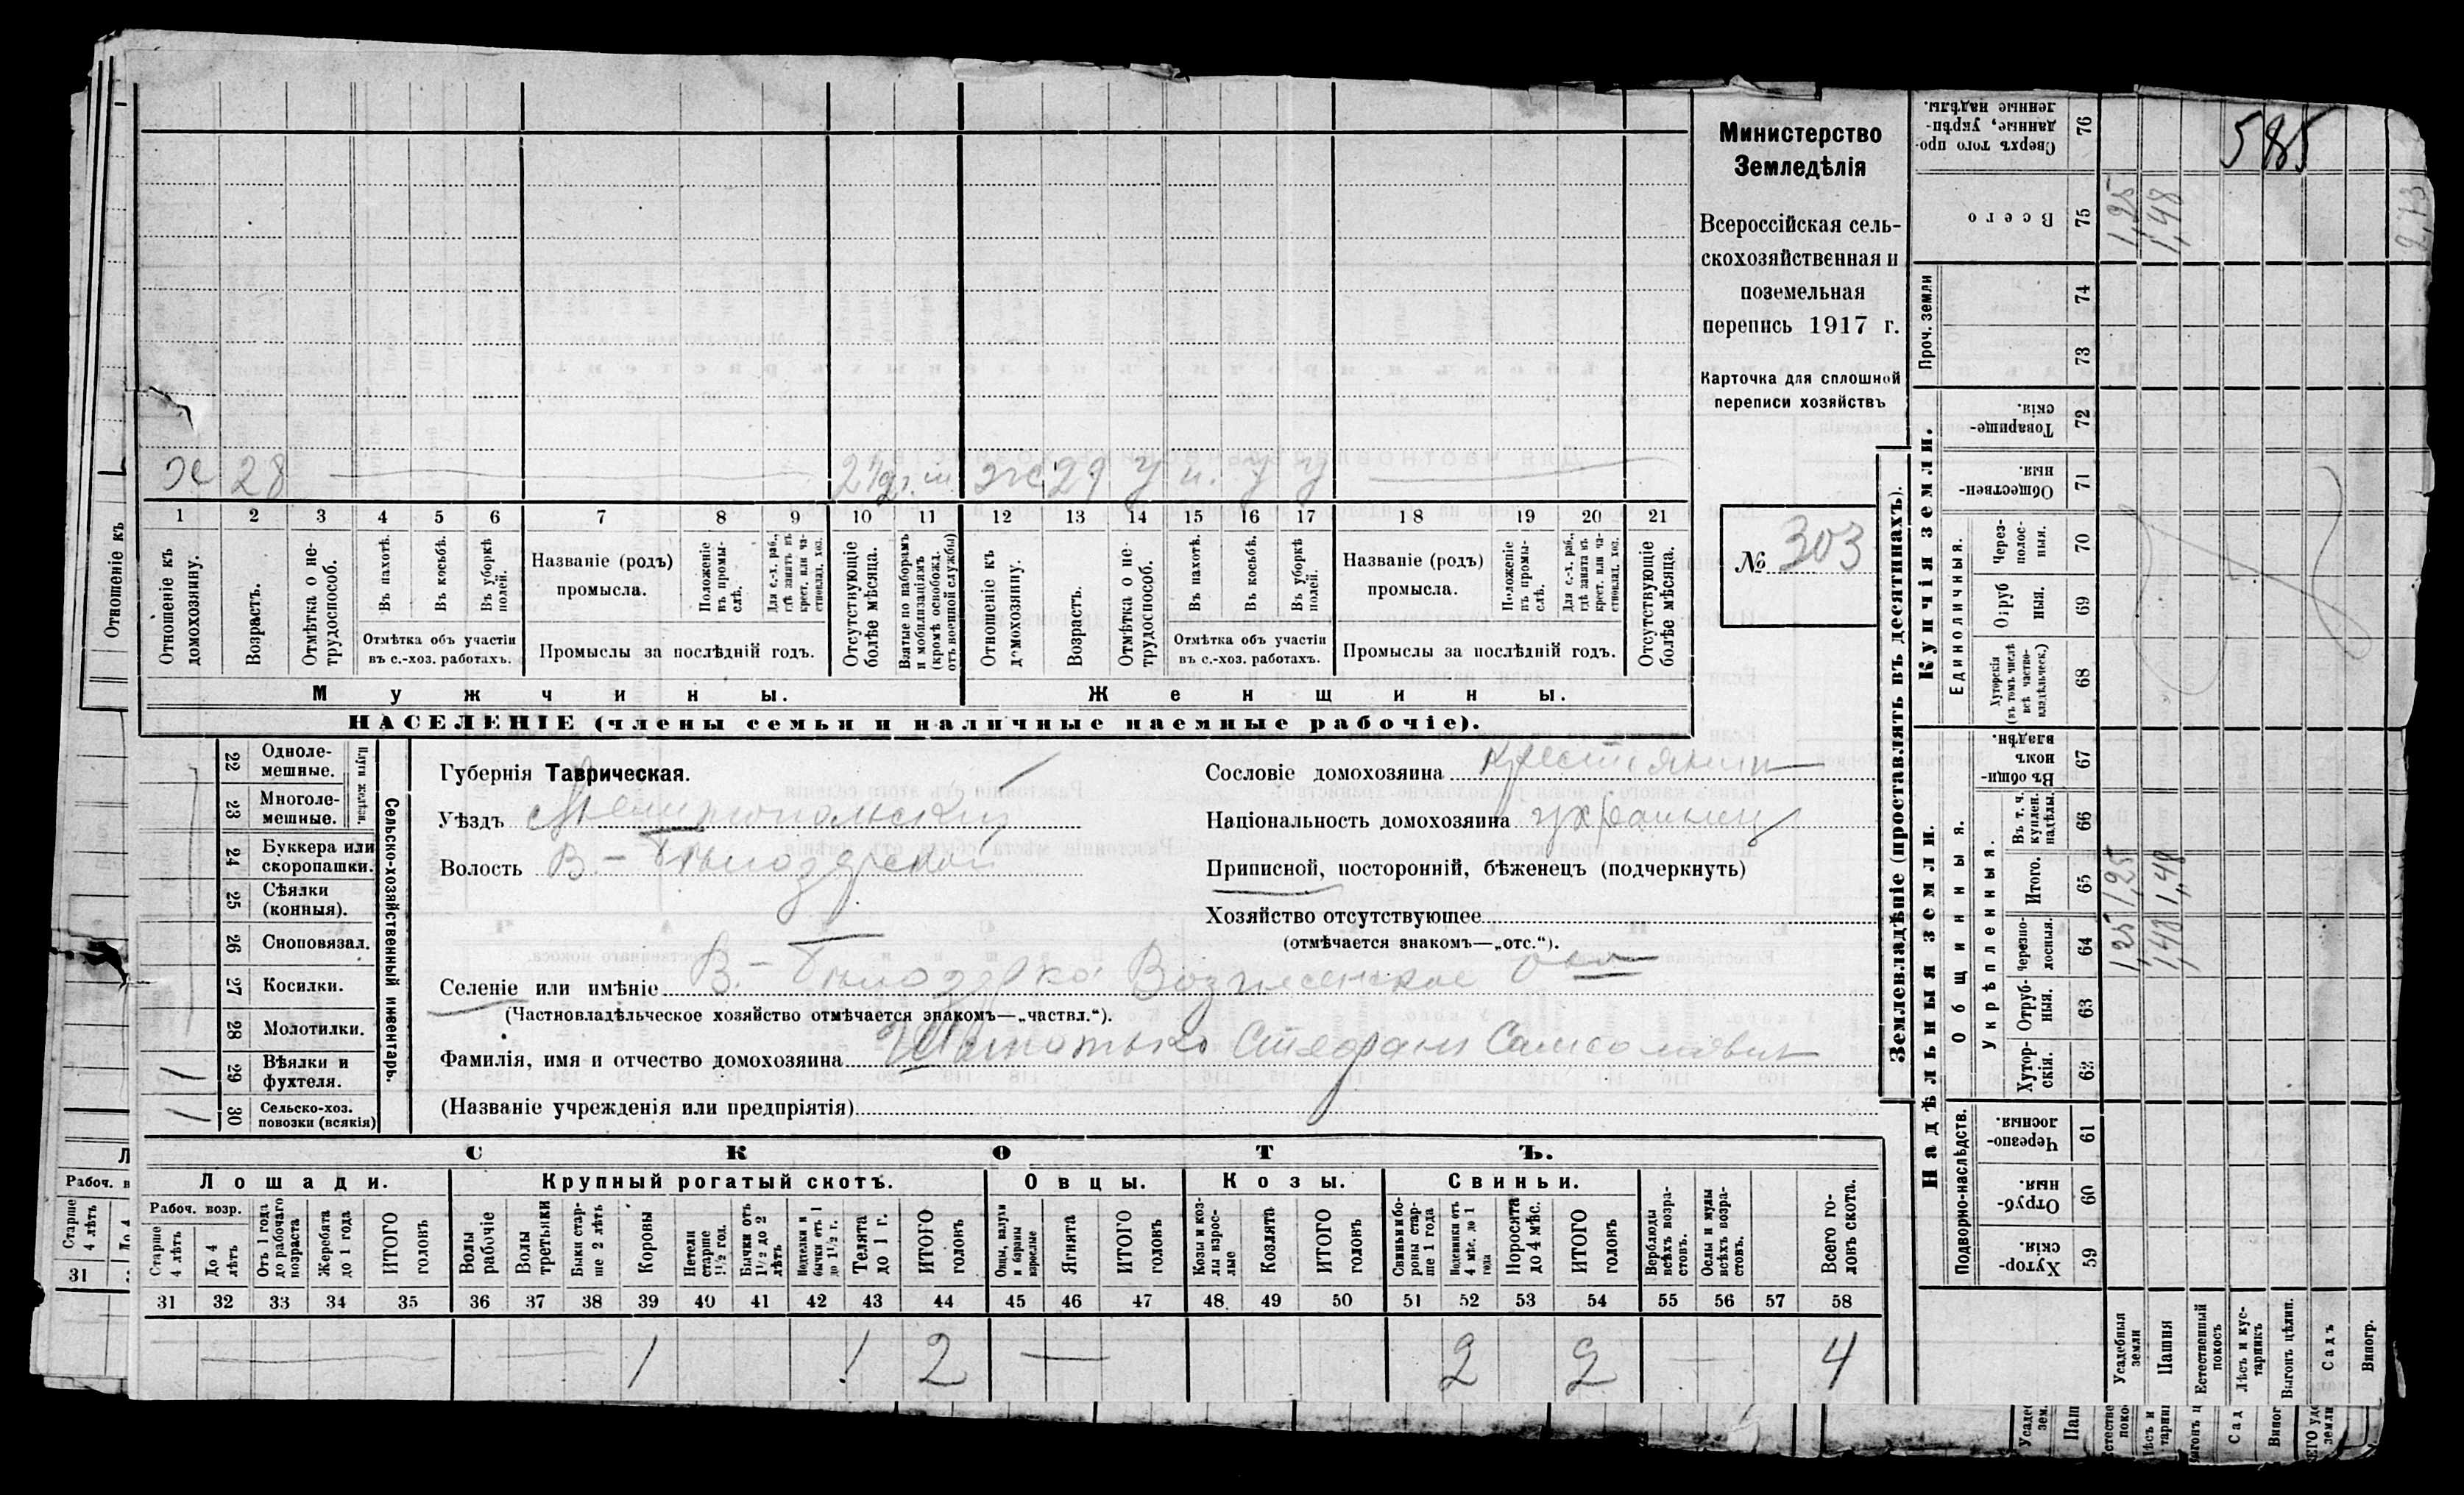 Министерство
Земледѣлія
Всероссійская сель-
скохозяйственная и
поземельная
перепись 1917 г.
Карточка для сплошной
переписи хозяйствъ
№ 303
х 28 2 1/2 г. ж 29 у н. у у
1 2 3 4 5 6 7 8 9 10 11 12 13 14 15 16 17 18 19 20 21
Отношеніе къ домохозяину.
Возрастъ.
Отмѣтка о не-трудоспособ.
Въ пахотѣ.
Въ косьбѣ.
Въ уборкѣ полей.
Отмѣтка объ участіи
въ с.-хоз. работахъ.
Названіе (родъ)
промысла.
Положеніе въ промы-слѣ.
Для с.-х. раб., гдѣ занятъ въ крест. или ча-стновлад. хоз.
Промыслы за послѣдній годъ.
Отсутствующіе болѣе мѣсяца.
Взятые по наборамъ и мобилизаціямъ (кромѣ освобожд. отъ военной службы)
Отношеніе къ домохозяину.
Возрастъ.
Отмѣтка о не-трудоспособ.
Въ пахотѣ.
Въ косьбѣ.
Въ уборкѣ полей.
Отмѣтка объ участіи
въ с.-хоз. работахъ.
Названіе (родъ)
промысла.
Положеніе въ промы-слѣ.
Для с.-х. раб., гдѣ занята въ крест. или ча-стновлад. хоз.
Промыслы за послѣдній годъ.
Отсутствующіе болѣе мѣсяца.
Мужчины.
Женщины.
НАСЕЛЕНІЕ (члены семьи и наличные наемные рабочіе).
22 Одноле-мешные.
23 Многоле-мешные.
Плуги желѣзн.
24 Буккера или скоропашки.
25 Сѣялки (конныя).
26 Сноповязал.
27 Косилки.
28 Молотилки.
29 Вѣялки и фухтеля.
30 Сельско-хоз. повозки (всякія)
Сельско-хозяйственный инвентарь.
Губернія Таврическая.
Уѣздъ Мелитопольский
Волость В-Білозерской
Сословіе домохозяина крестьянин
Національность домохозяина украинец
Приписной, посторонній, бѣженецъ (подчеркнуть)
Хозяйство отсутствующее
(отмѣчается знакомъ—„отс.“).
Селеніе или имѣніе В.-Білозерка Вознесенское
(Частновладѣльческое хозяйство отмѣчается знакомъ—„частвл.“).
Фамилія, имя и отчество домохозяина Стефан Самсонович
(Названіе учрежденія или предпріятія)
СКОТЪ.
Лошади.
Крупный рогатый скотъ.
Овцы.
Козы.
Свиньи.
Рабоч. возр.
Старше 4 лѣтъ
До 4 лѣтъ
Отъ 1 года до рабочаго возраста
Жеребята до 1 года
ИТОГО головъ
Волы рабочіе
Волы третьяки
Быки стар-ше 2 лѣтъ
Коровы
Нетели старше 1½ год.
Бычки отъ 1½ до 2 лѣтъ
Подтелки и бычки отъ 1 до 1½ г.
Телята до 1 г.
ИТОГО головъ
Овцы, валухи и бараны взрослые
Ягнята
ИТОГО головъ
Козы и коз-лы взрос-лые
Козлята
ИТОГО головъ
Свиньи и бо-ровы стар-ше 1 года
Подсвинки отъ 4 мѣс. до 1 года
Поросята до 4 мѣс.
ИТОГО головъ
Верблюды всѣхъ возра-стовъ.
Ослы и мулы всѣхъ возра-стовъ.
Всего го-ловъ скота.
31 32 33 34 35 36 37 38 39 40 41 42 43 44 45 46 47 48 49 50 51 52 53 54 55 56 57 58
1 1 2 2 2 4
Землевладѣніе (проставлять въ десятинахъ).
Купчія земли.
Надѣльныя земли.
Сверхъ того про-данные, укрѣп-ленные надѣлы. 76
585
Всего 75
1,25
1,48
2,73
Проч. земли
74
73
Товарище-скія. 72
Обществен-ныя. 71
Единоличныя.
Через-полос-ныя. 70
Отруб-ныя. 69
Хуторскія (въ томъ числѣ всѣ частно-владѣльческ.) 68
Общинныя.
Въ общи-номъ владѣн. 67
Укрѣпленныя.
Въ т. ч. куплен. надѣлы. 66
Итого. 65
1,25
1,48
Черезпо-лосныя. 64
1,25
1,48
Отруб-ныя. 63
Хутор-скія. 62
Подворно-наслѣдств.
Черезпо-лосныя. 61
Отруб-ныя. 60
Хутор-скія. 59
Усадебныя земли
Пашня
Естественный покосъ
Лѣсъ и кус-тарникъ
Выгонъ цѣлин.
Садъ
Виногр.
Отношеніе къ
Рабоч. в
Старше 4 лѣтъ
31